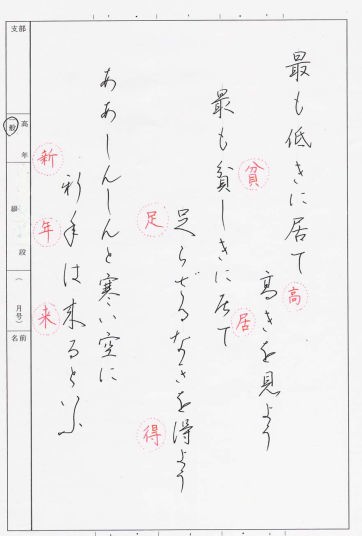 最も低きに居て
高きを見よう
最も貧しきに居て
足らざるなきを得よう
ああしんしんと寒い空に
新年は来るといふ
高
貧
居
足
得
新
年
来
支部
高
般
年
級
段
(
月号)
名前